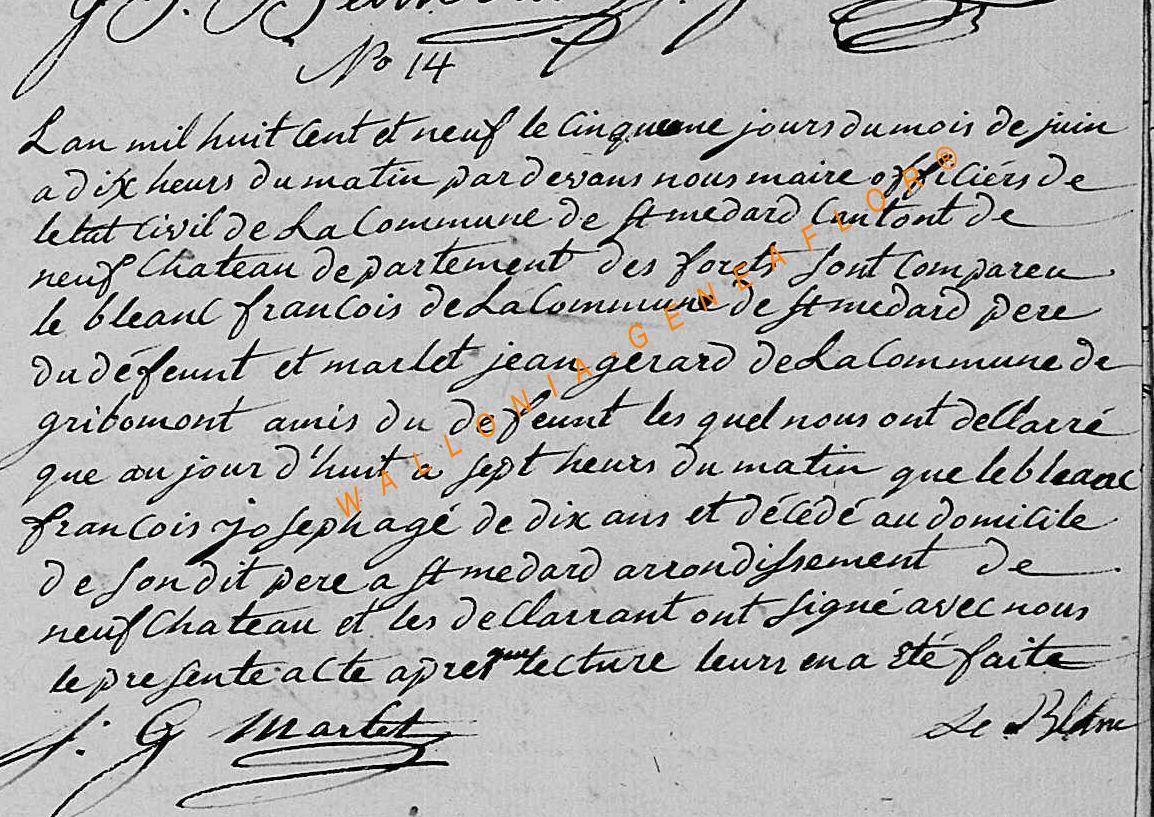 No 14
Lan mil huit Cent et neuf le Cinqueme jours du mois de juin
a dix heurs du matin par devans nous maire officiérs de
letat Civil de La Commune de St medard Cantont de
neuf Chateau departement des forets Sont Compareu
le bleanc francois de La Commune de St medard pere
du défeunt et marlet jean gerard de La Commune de
gribomont amis du defeunt les quel nous ont deClarré
que au jour d'huit a sept heurs du matin que le bleanc
francois joseph agé de dix ans et décédé au domicile
de Son dit pere a St medard arrondissement de
neuf Chateau et les deClarrant ont Signé avec nous
le presente acte apres que lecture leurs en a été faite
j. G Marlet
Le Blanc
WALLONIA-GENEAFLOR®